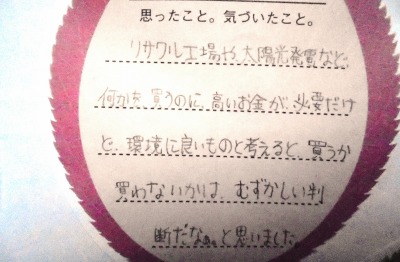 思ったこと。気づいたこと。
リサクル工場や、太陽光発電など、
何かを買うのに、高いお金が、必要だけ
ど、環境に良いものと考えると、買うか
買わないかは、むずかしい判
断だなぁ。と思いました。